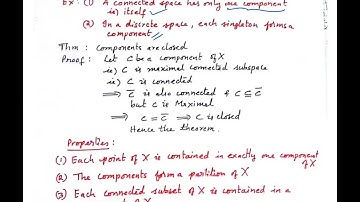 Ex: (1) A connected space has only one component
ie) itself
(2) In a discrete space, each singleton forms a
component
Thm : Components are closed
Proof : Let C be a component of X
ie) C is maximal connected subspace
ie) C is connected
⟹ C̅ is also connected & C ⊆ C̅
but C is Maximal
⟹ C = C̅ ⟹ C is closed
Hence the theorem.
Properties :
(1) Each point of X is contained in exactly one component of X
(2) The components form a partition of X
(3) Each connected subset of X is contained in a